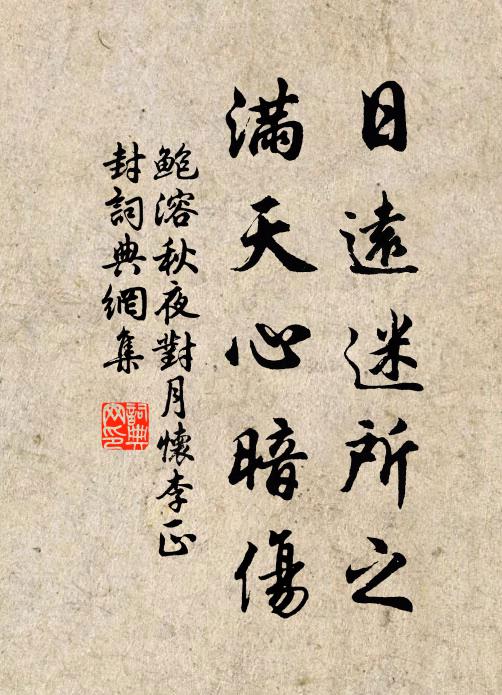 日遠迷所之
滿天心暗傷
鮑溶秋夜對月懷李正
封詞典網集
詞典
网印